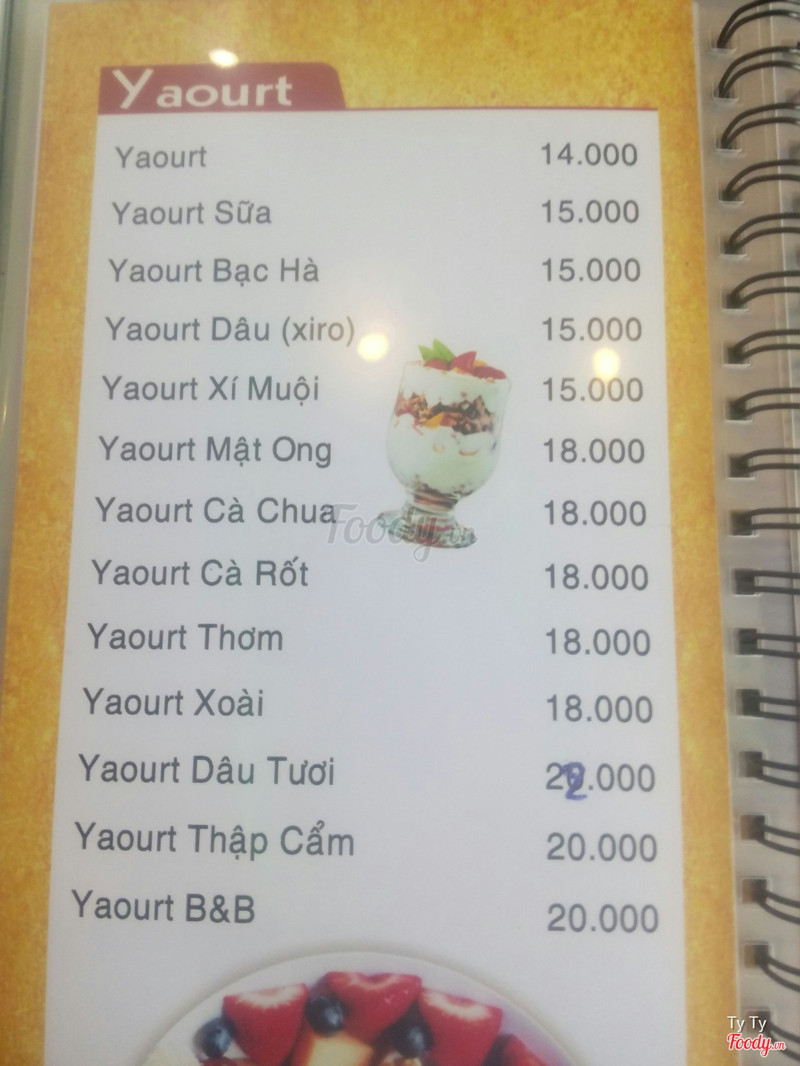 Yaourt
Yaourt 14.000
Yaourt Sữa 15.000
Yaourt Bạc Hà 15.000
Yaourt Dâu (xiro) 15.000
Yaourt Xí Muội 15.000
Yaourt Mật Ong 18.000
Yaourt Cà Chua 18.000
Foody.vn
Yaourt Cà Rốt 18.000
Yaourt Thơm 18.000
Yaourt Xoài 18.000
Yaourt Dâu Tươi 22.000
Yaourt Thập Cẩm 20.000
Yaourt B&B 20.000
Ty Ty
Foody.vn